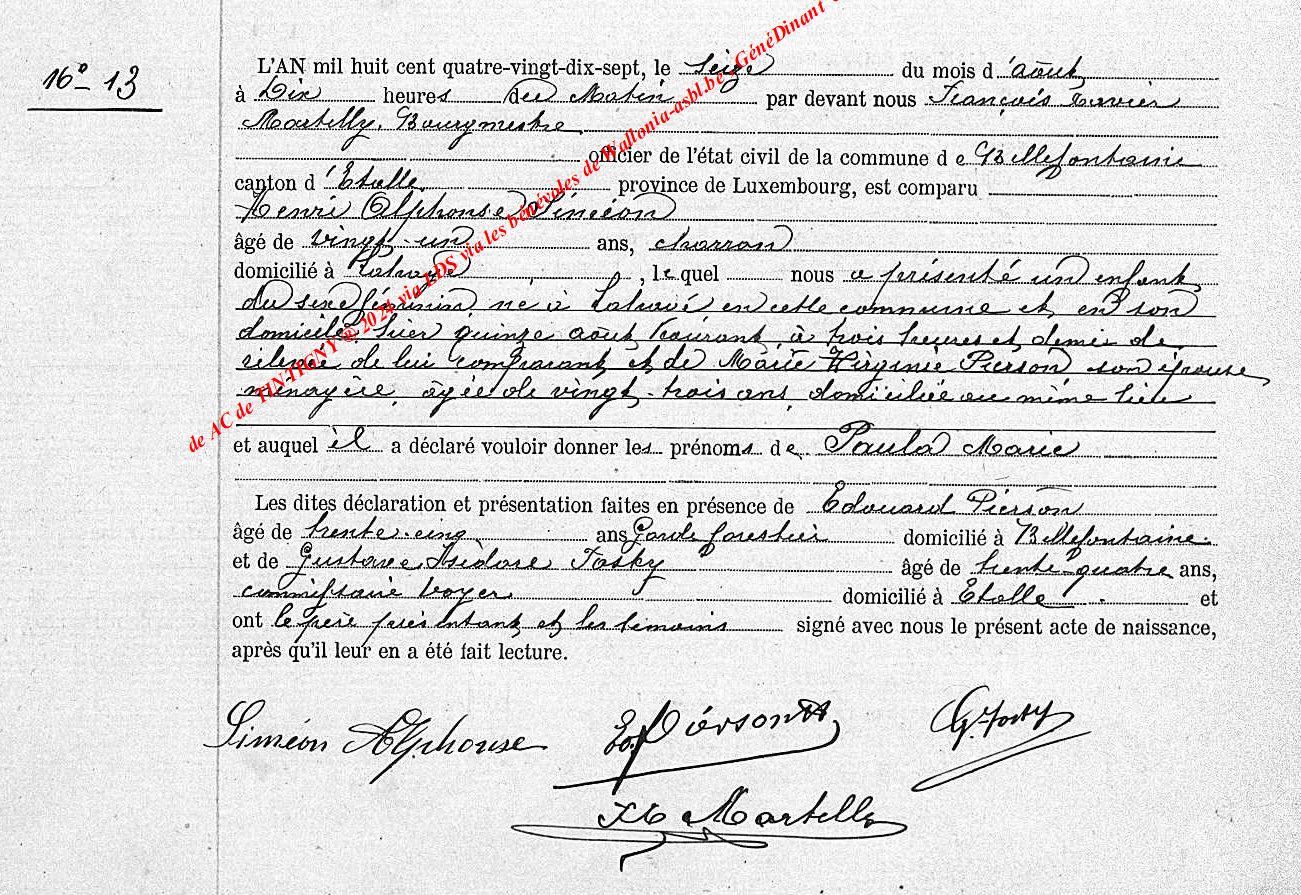 16° - 13
L'AN mil huit cent quatre-vingt-dix-sept, le Seize du mois d'août
à Dix heures du Matin par devant nous François Xavier
Martilly, Bourgmestre
officier de l'état civil de la commune de Bellefontaine
canton d'Etalle province de Luxembourg, est comparu
Henri Alphonse Siméon
âgé de vingt-un ans, charron
domicilié à , lequel nous a présenté un enfant
du sexe féminin, né à en cette commune et en son
domicile hier quinze août courant, à trois heures et demie de
relevée de lui comparant et de Marie Virginie Pierson, son épouse
ménagère, âgée de vingt-trois ans, domiciliée au même lieu
et auquel il a déclaré vouloir donner les prénoms de Paula Marie
Les dites déclaration et présentation faites en présence de Edouard Pierson
âgé de trente-cinq ans Garde forestier domicilié à Bellefontaine
et de Gustave Isidore âgé de trente-quatre ans,
commissaire voyer domicilié à Etalle et
ont le père présentant et les témoins signé avec nous le présent acte de naissance,
après qu'il leur en a été fait lecture.
Siméon Alphonse Ed Pierson
Martilly
de AC de TINTIGNY © 2024 via LDS via les bénévoles de Wallonia-asbl.be - GénéDinant